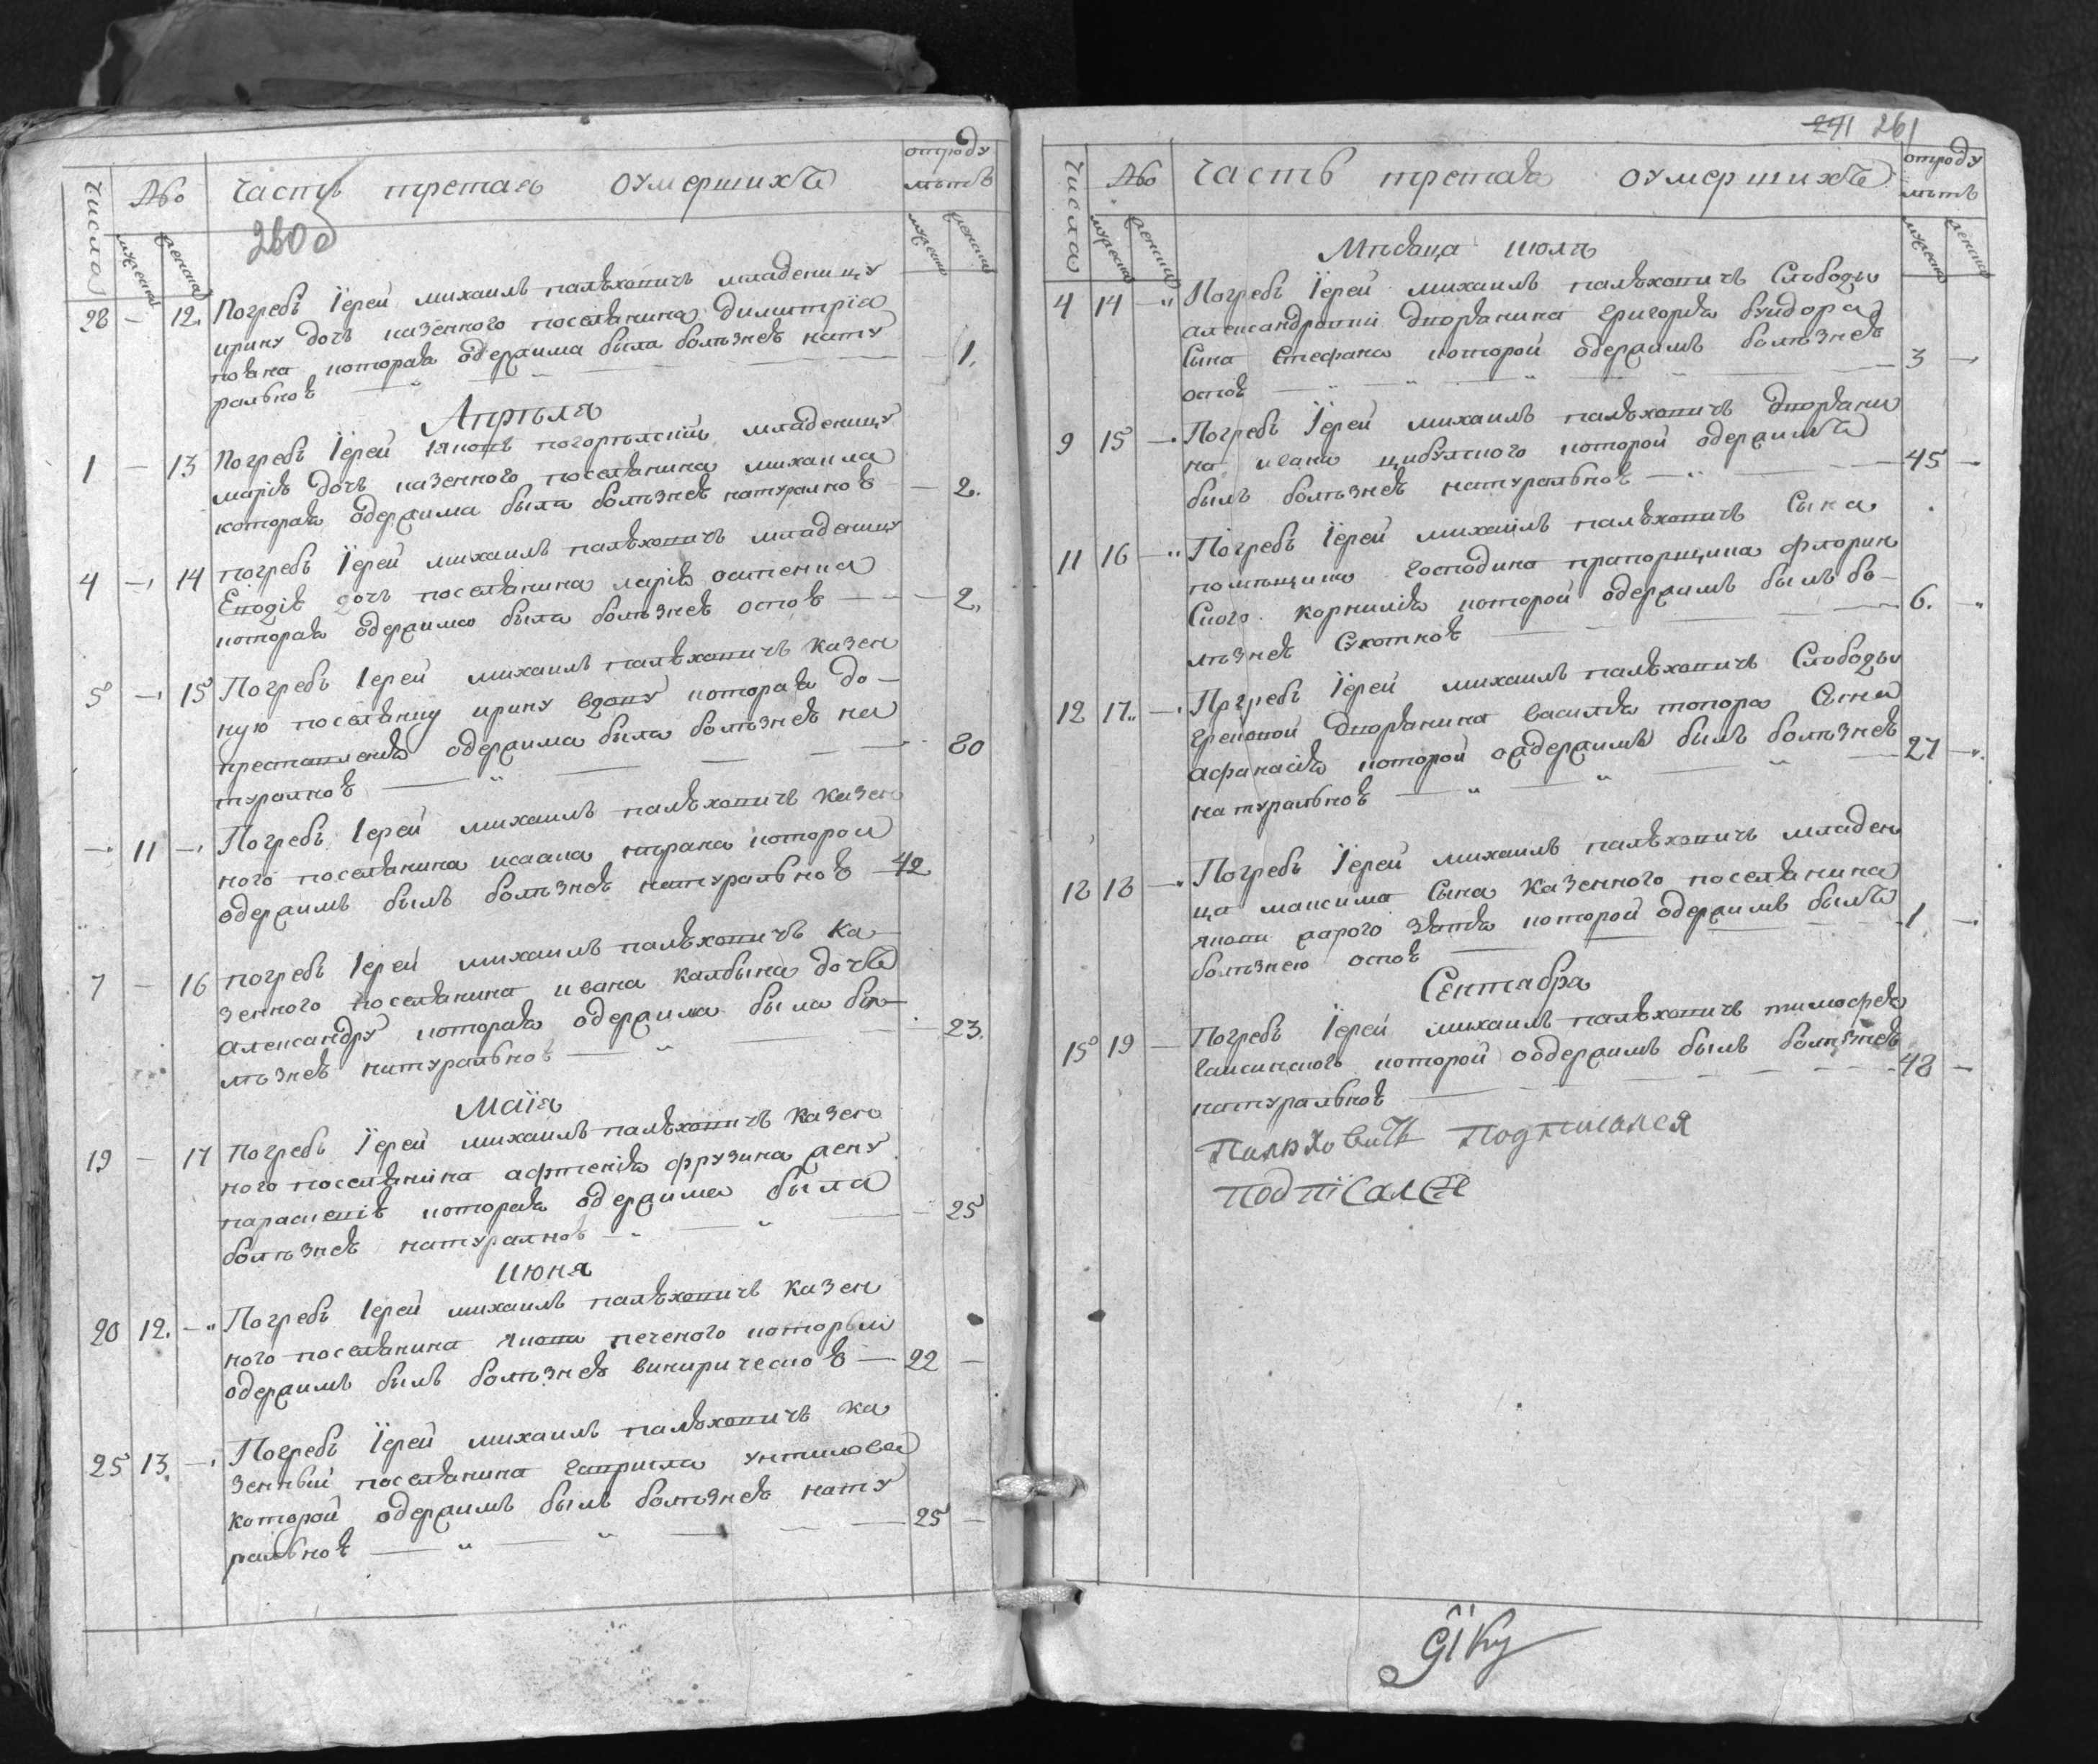 Числа
№
Часть третая оумершихъ
отроду
лѣтъ
260 об
мужеска
женска
мужеска
женска
28 — 12. Погребъ Іерей михаилъ палѣховичъ младеницу
ирину дочъ казенного поселянина димитріа
которая одержима была болѣзнею нату
ральною — 1.
Апрѣля
1 — 13 Погребъ Іерей младеницу
марію дочъ казенного поселянина михаила
которая одержима была болѣзнею натуралною — 2.
4 — 14 погребъ Іерей михаилъ палѣховичъ младеницу
дочъ поселянина
которая одержима была болѣзнею оспою — 2.
5 — 15 Погребъ Іерей михаилъ палѣховичъ казен
ную поселянку ирину вдову которая до —
преставления одержима была болѣзнею на
туралною — 80
— 11 — Погребъ Іерей михаилъ палѣховичъ казен
ного поселянина исаака которой
одержимъ былъ болѣзнею натуральною — 42
7 — 16 погребъ Іерей михаилъ палѣховичъ ка
зенного поселянина ивана калбына дочъ
александру которая одержима была бо
лѣзнею натуральною — 23.
Маїя
19 — 17 Погребъ Іерей михаилъ палѣховичъ казен
ного поселянина афтенія фрузина жену
параскевію которая одержима была
болѣзнею натуралною — 25
Июня
20 12. — Погребъ Іерей михаилъ палѣховичъ казен
ного поселянина якова печеного который
одержимъ былъ болѣзнею — 22 —
25 13. — Погребъ Іерей михаилъ палѣховичъ ка
зенный поселянина гавриила унтилова
которой одержимъ былъ болѣзнею нату
ральною — 25 —
241 261
Числа
№
Часть третая оумершихъ
отроду
лѣтъ
мужеска
женска
мужеска
женска
Мѣсяца июля
4 14 — Погребъ Іерей михаилъ палѣховичъ Слободы
александровки дворянина григорія бундора
Сына Стефана которой одержимъ болѣзнею
оспою — 3 —
9 15 — Погребъ Іерей михаилъ палѣховичъ дворяни
на ивана цибулского которой одержимъ
былъ болѣзнею натуральною — 45 —
11 16 — Погребъ Іерей михаилъ палѣховичъ Сына
помѣщика господина прапорщика флорин
Ского корнилія которой одержимъ былъ бо —
лѣзнею Сухотною — 6. —
12 17. — Погребъ Іерей михаилъ палѣховичъ Слободы
грековой дворянина василия топора Сына
афанасія которой одержимъ былъ болѣзнею
натуральною — 27 —
18 18 — Погребъ Іерей михаилъ палѣховичъ младен
ца максима Сына казенного поселянина
якова зятя которой одержимъ былъ
болѣзнею оспою — 1. —
Сентября
15 19 — Погребъ Іерей михаилъ палѣховичъ тимофея
гансинского которой одержимъ былъ болѣзнею
натуральною — 48 —
Палѣховичъ подписался
подпісалсѧ